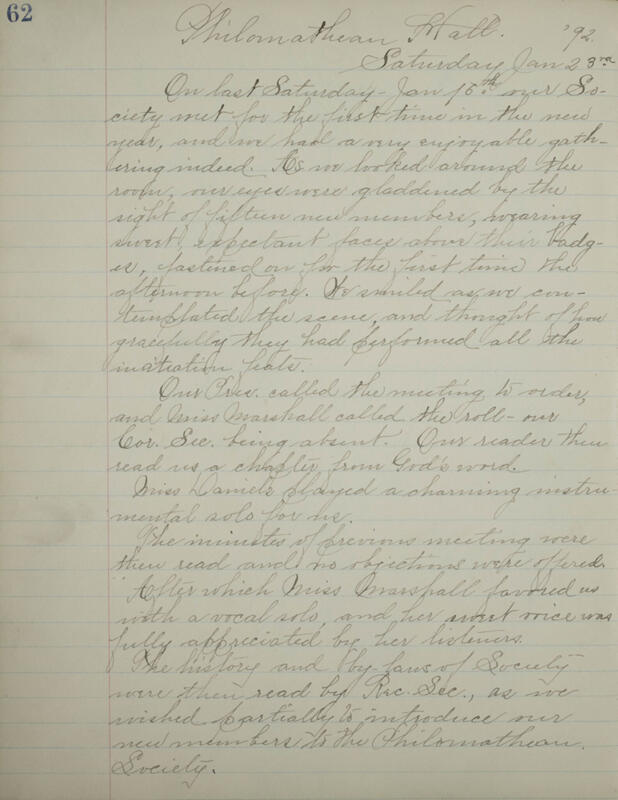 62
Philomathean Hall. '92.
Saturday Jan 23rd
On last Saturday - Jan 16th our So-
ciety met for the first time in the new
year, and we had a very enjoyable gath-
ering indeed. As we looked around the
room, our eyes were gladdened by the
sight of fifteen new members, wearing
sweet, expectant faces above their badg-
es, fastened on for the first time the
afternoon before. We smiled as we con-
templated the scene, and thought of how
gracefully they had performed all the
initiation feats.
Our Pres. called the meeting to order,
and Miss Marshall called the roll - our
Cor. Sec. being absent. Our reader then
read us a chapter from God's word.
Miss Daniels played a charming instru-
mental solo for us.
The minutes of previous meeting were
then read and no objections were offered.
After which Miss Marshall favored us
with a vocal solo, and her sweet voice was
fully appreciated by her listeners.
The history and by-laws of Society
were then read by Rec. Sec., as we
wished partially to introduce our
new members to the Philomathean
Society.